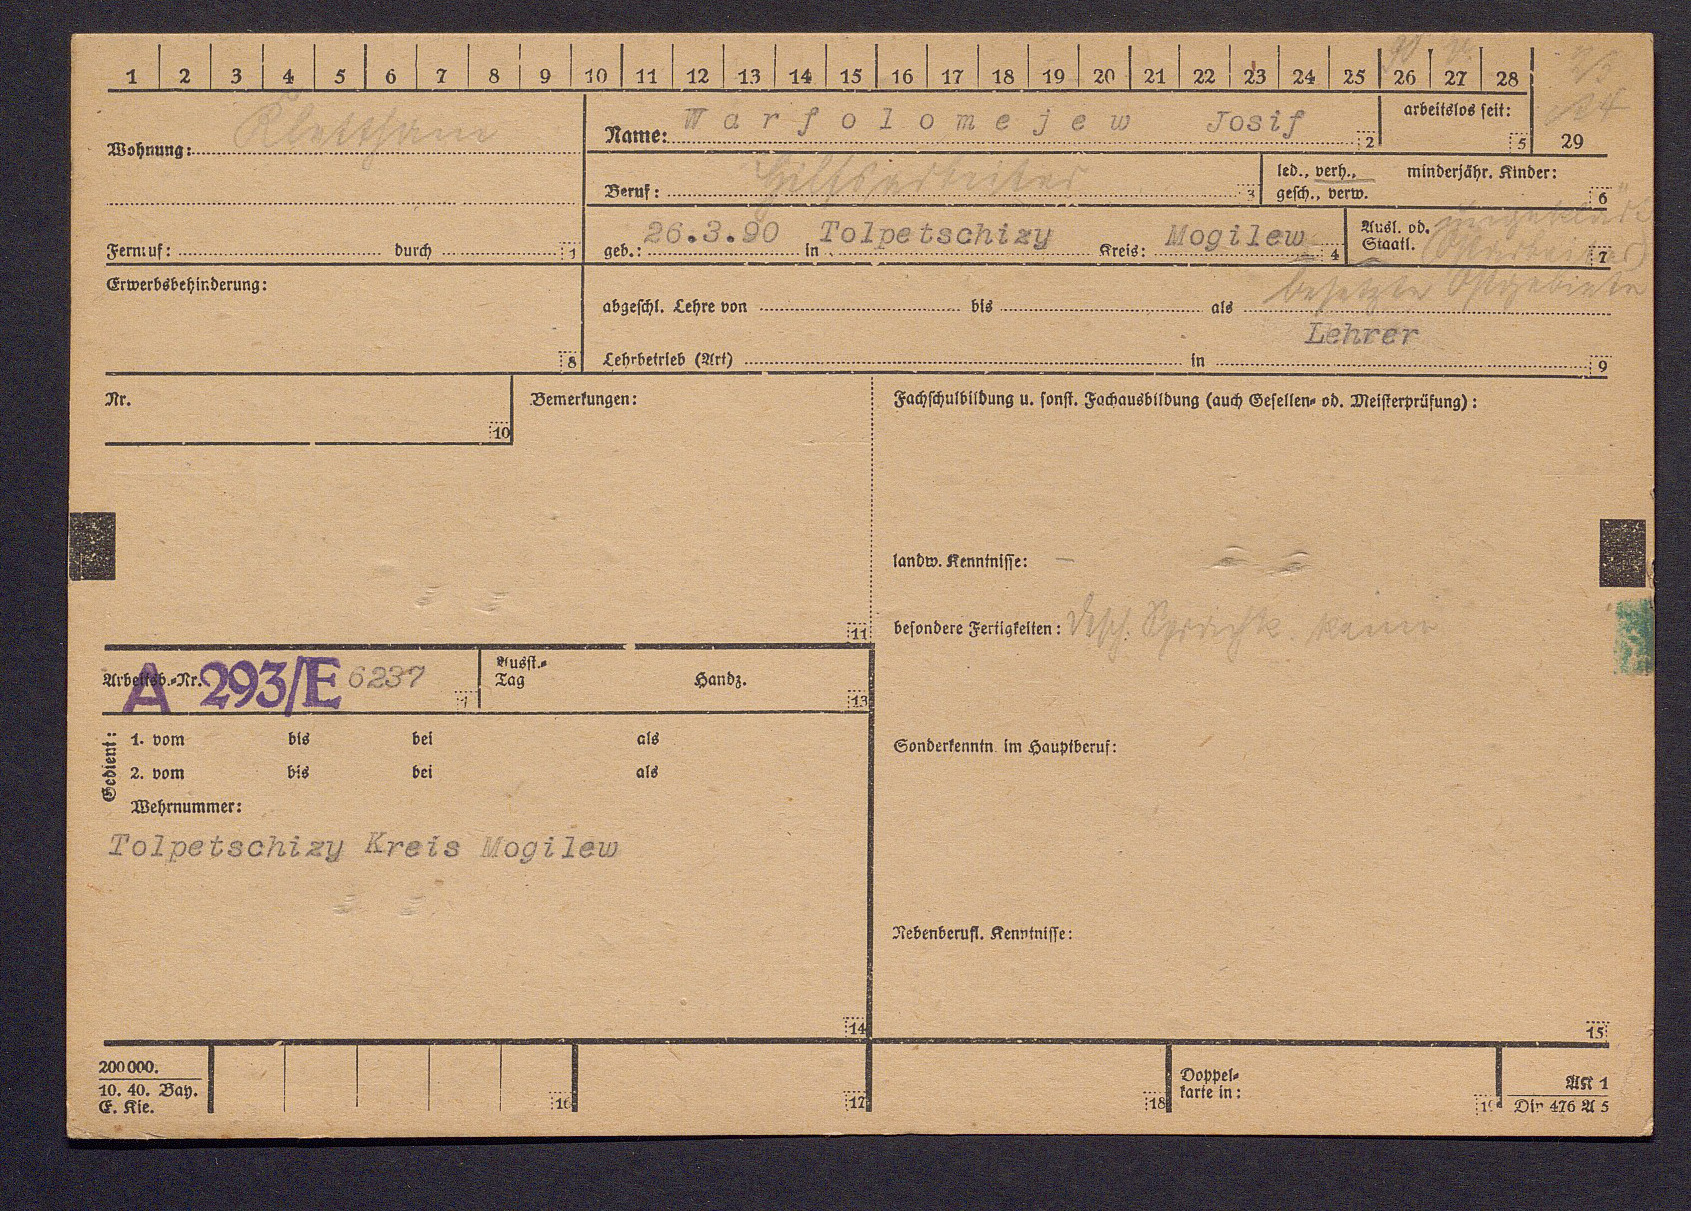 1 2 3 4 5 6 7 8 9 10 11 12 13 14 15 16 17 18 19 20 21 22 23 24 25 26 27 28
29
Wohnung:
Name: Warfolomejew Josif 2
arbeitslos seit: 5
Beruf: Hilfsarbeiter 3
led., verh., gesch., verw.
minderjähr. Kinder: 6
Fernruf: durch 1
geb.: 26.3.90 in Tolpetschizy Kreis: Mogilew 4
Ausl. od. Staatl. 7
besetzte Ostgebiete
Erwerbsbehinderung: 8
abgeschl. Lehre von bis als
Lehrer
Lehrbetrieb (Art) in 9
Nr. 10
Bemerkungen: 11
Fachschulbildung u. sonst. Fachausbildung (auch Gesellen- od. Meisterprüfung):
landw. Kenntnisse: –
besondere Fertigkeiten: keine
Arbeitsb.-Nr. A 293/E 6237
Ausst.-Tag Handz. 13
Gedient:
1. vom bis bei als
2. vom bis bei als
Wehrnummer:
Tolpetschizy Kreis Mogilew
14
Sonderkenntn. im Hauptberuf:
Nebenberufl. Kenntnisse:
15
200 000.
10. 40. Bay.
E. Kie.
16
17
18
Doppel-
karte in:
19
AK 1
Din 476 A 5